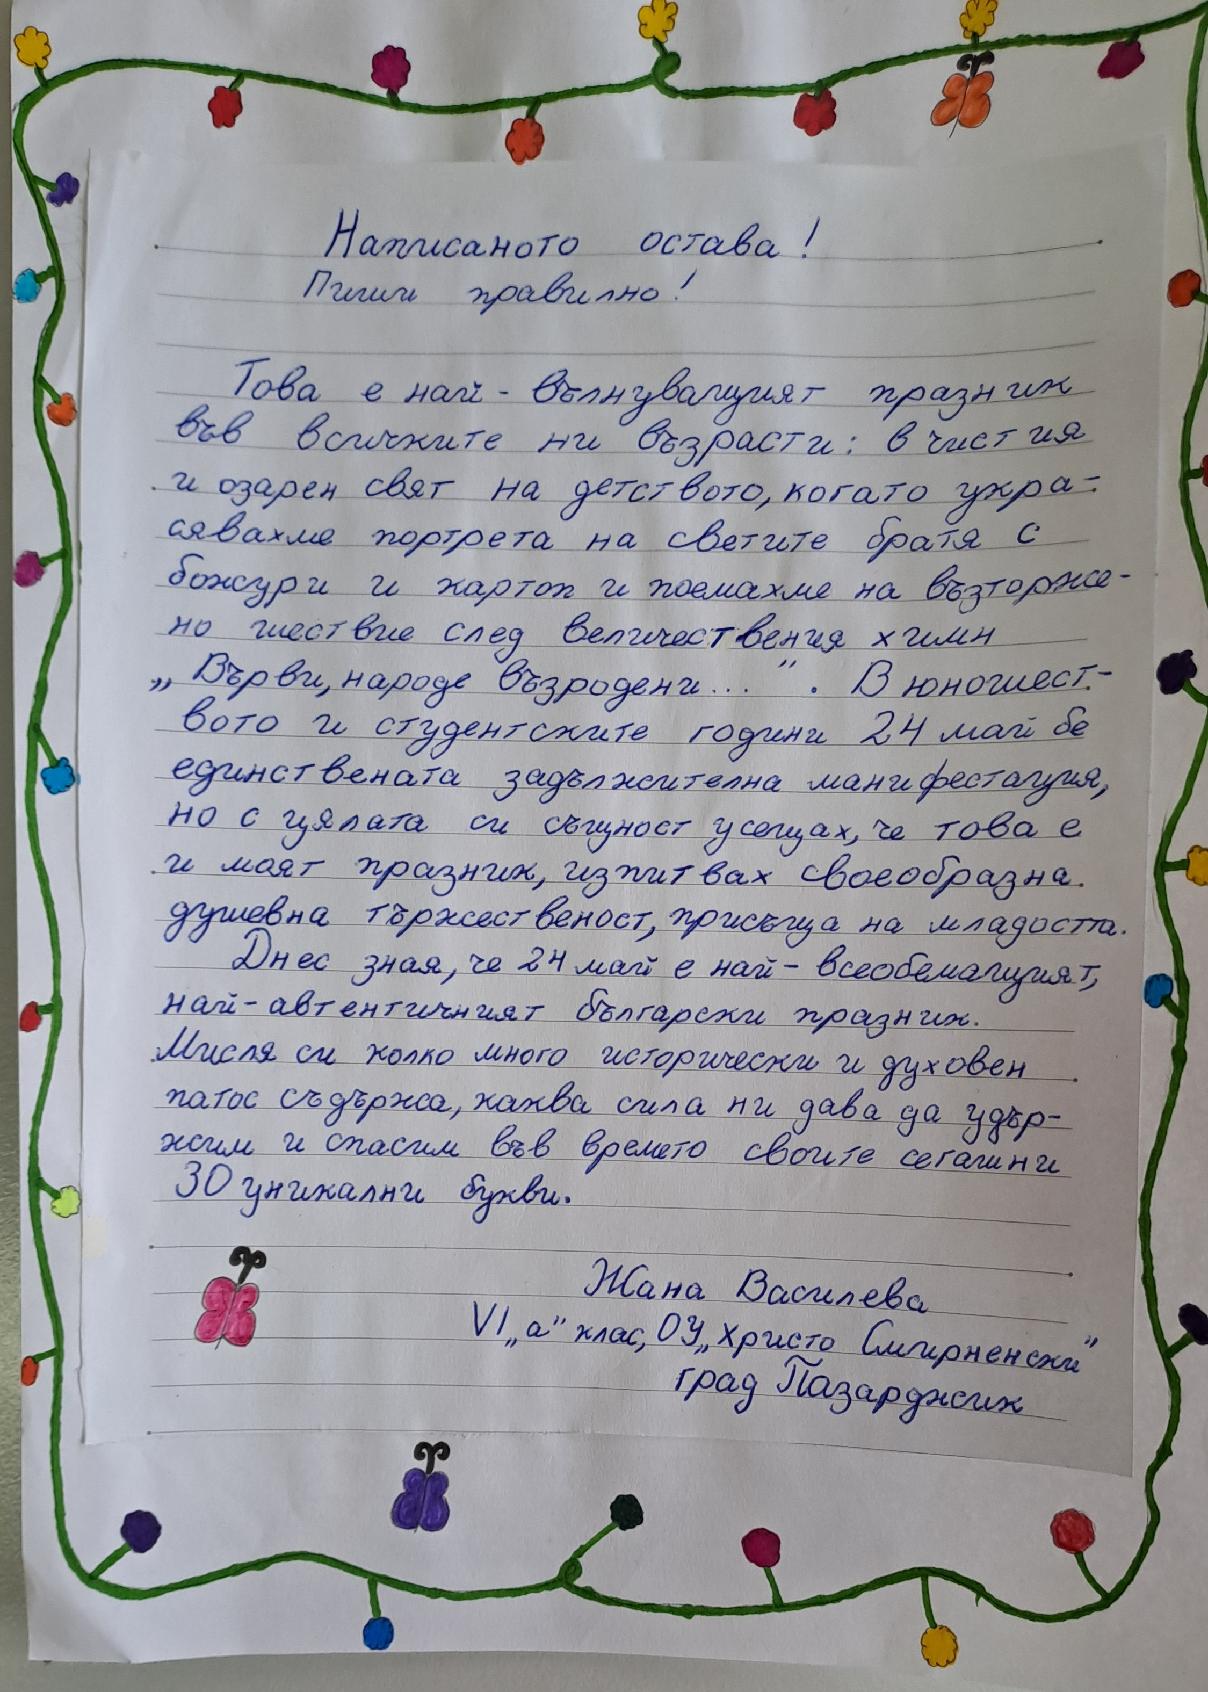 Написаното остава!
Пиши правилно!
Това е най-вълнуващият празник
във всичките ни възрасти: в чистия
и озарен свят на детството, когато укра-
сявахме портрета на светите братя с
божури и картоп и поемахме на възторже-
но шествие след величествения химн
„Върви, народе възродени...". В юношест-
вото и студентските години 24 май бе
единствената задължителна манифестация,
но с цялата си същност усещах, че това е
и моят празник, изпитвах своеобразна
душевна тържественост, присъща на младостта.
Днес зная, че 24 май е най-всеобемащият,
най-автентичният български празник.
Мисля си колко много исторически и духовен
патос съдържа, каква сила ни дава да удър-
жим и спасим във времето своите сегашни
30 уникални букви.
Жана Василева
VI „а" клас, ОУ „Христо Смирненски"
град Пазарджик